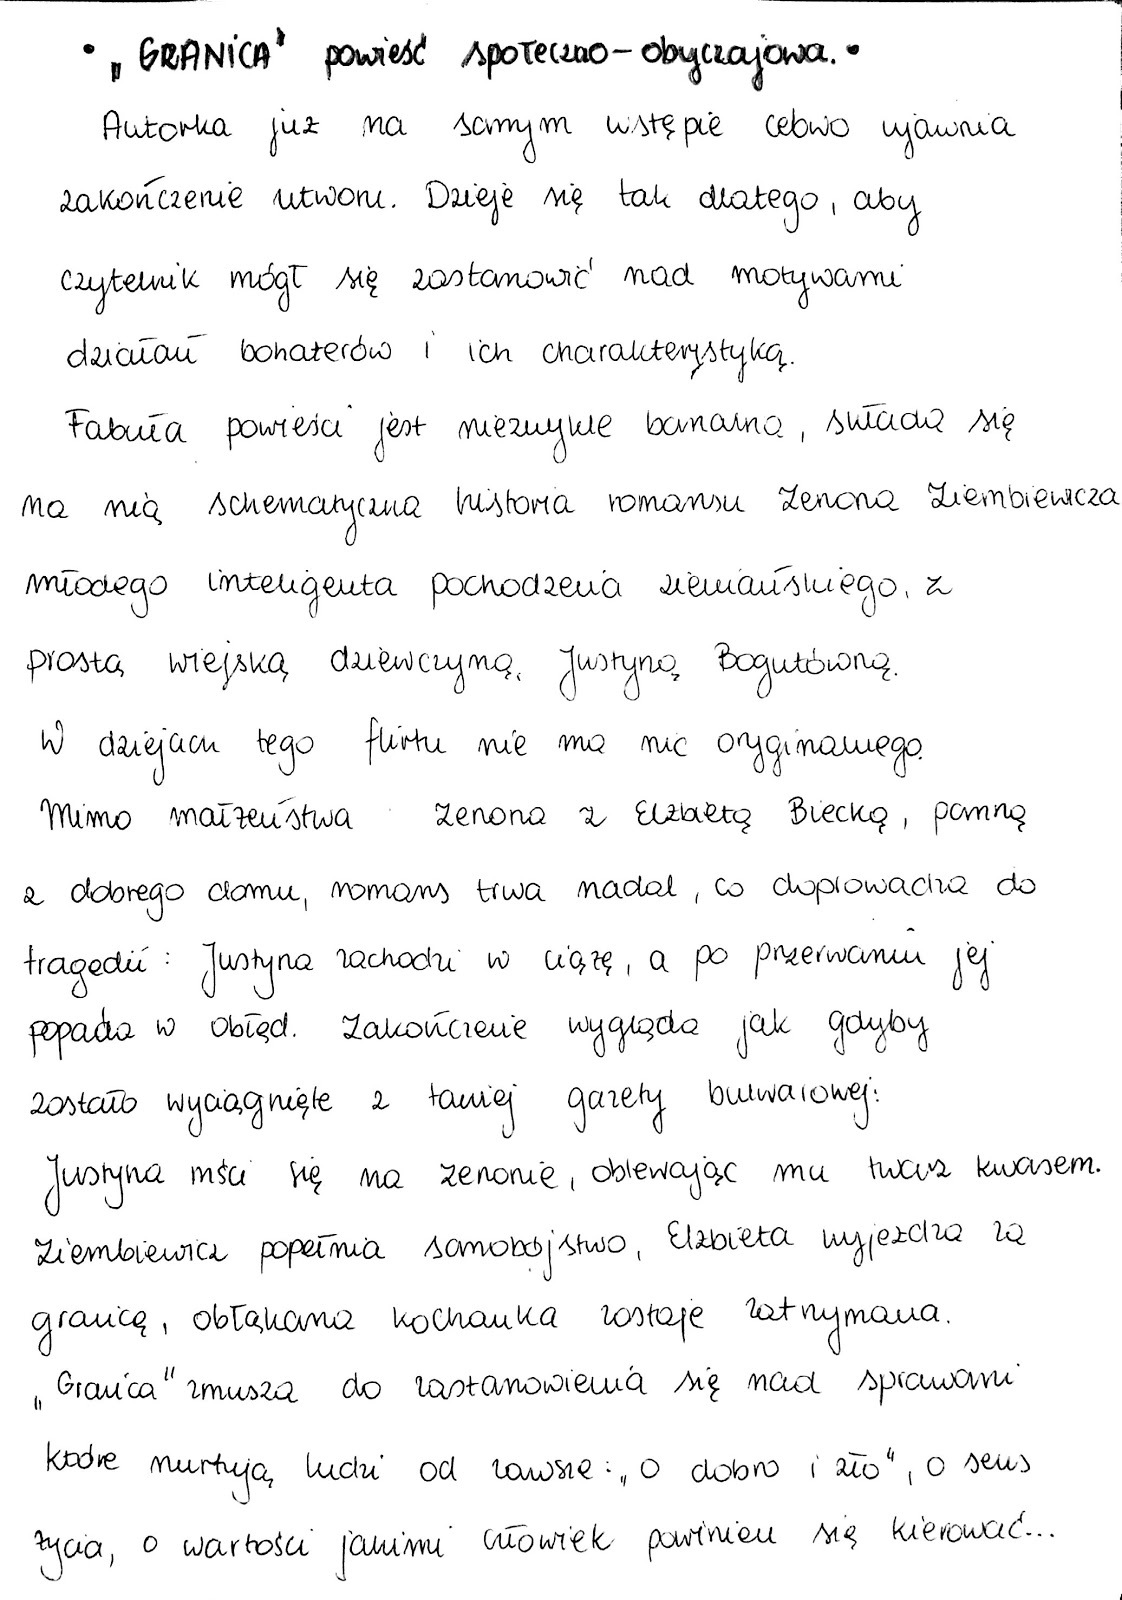 • „GRANICA” powieść społeczno-obyczajowa. •
Autorka już na samym wstępie celowo ujawnia
zakończenie utworu. Dzieje się tak dlatego, aby
czytelnik mógł się zastanowić nad motywami
działań bohaterów i ich charakterystyką.
Fabuła powieści jest niezwykle banalna, składa się
na nią schematyczna historia romansu Zenona Ziembiewicza
młodego inteligenta pochodzenia ziemiańskiego, z
prostą wiejską dziewczyną, Justyną Bogutówną.
W dziejach tego flirtu nie ma nic oryginalnego.
Mimo małżeństwa Zenona z Elżbietą Biecką, panną
z dobrego domu, romans trwa nadal, co doprowadza do
tragedii: Justyna zachodzi w ciążę, a po przerwaniu jej
popada w obłęd. Zakończenie wygląda jak gdyby
zostało wyciągnięte z taniej gazety bulwarowej:
Justyna mści się na Zenonie, oblewając mu twarz kwasem.
Ziembiewicz popełnia samobójstwo, Elżbieta wyjeżdża za
granicę, obłąkana kochanka zostaje zatrzymana.
„Granica” zmusza do zastanowienia się nad sprawami
które nurtują ludzi od zawsze: „o dobro i zło”, o sens
życia, o wartości jakimi człowiek powinien się kierować...